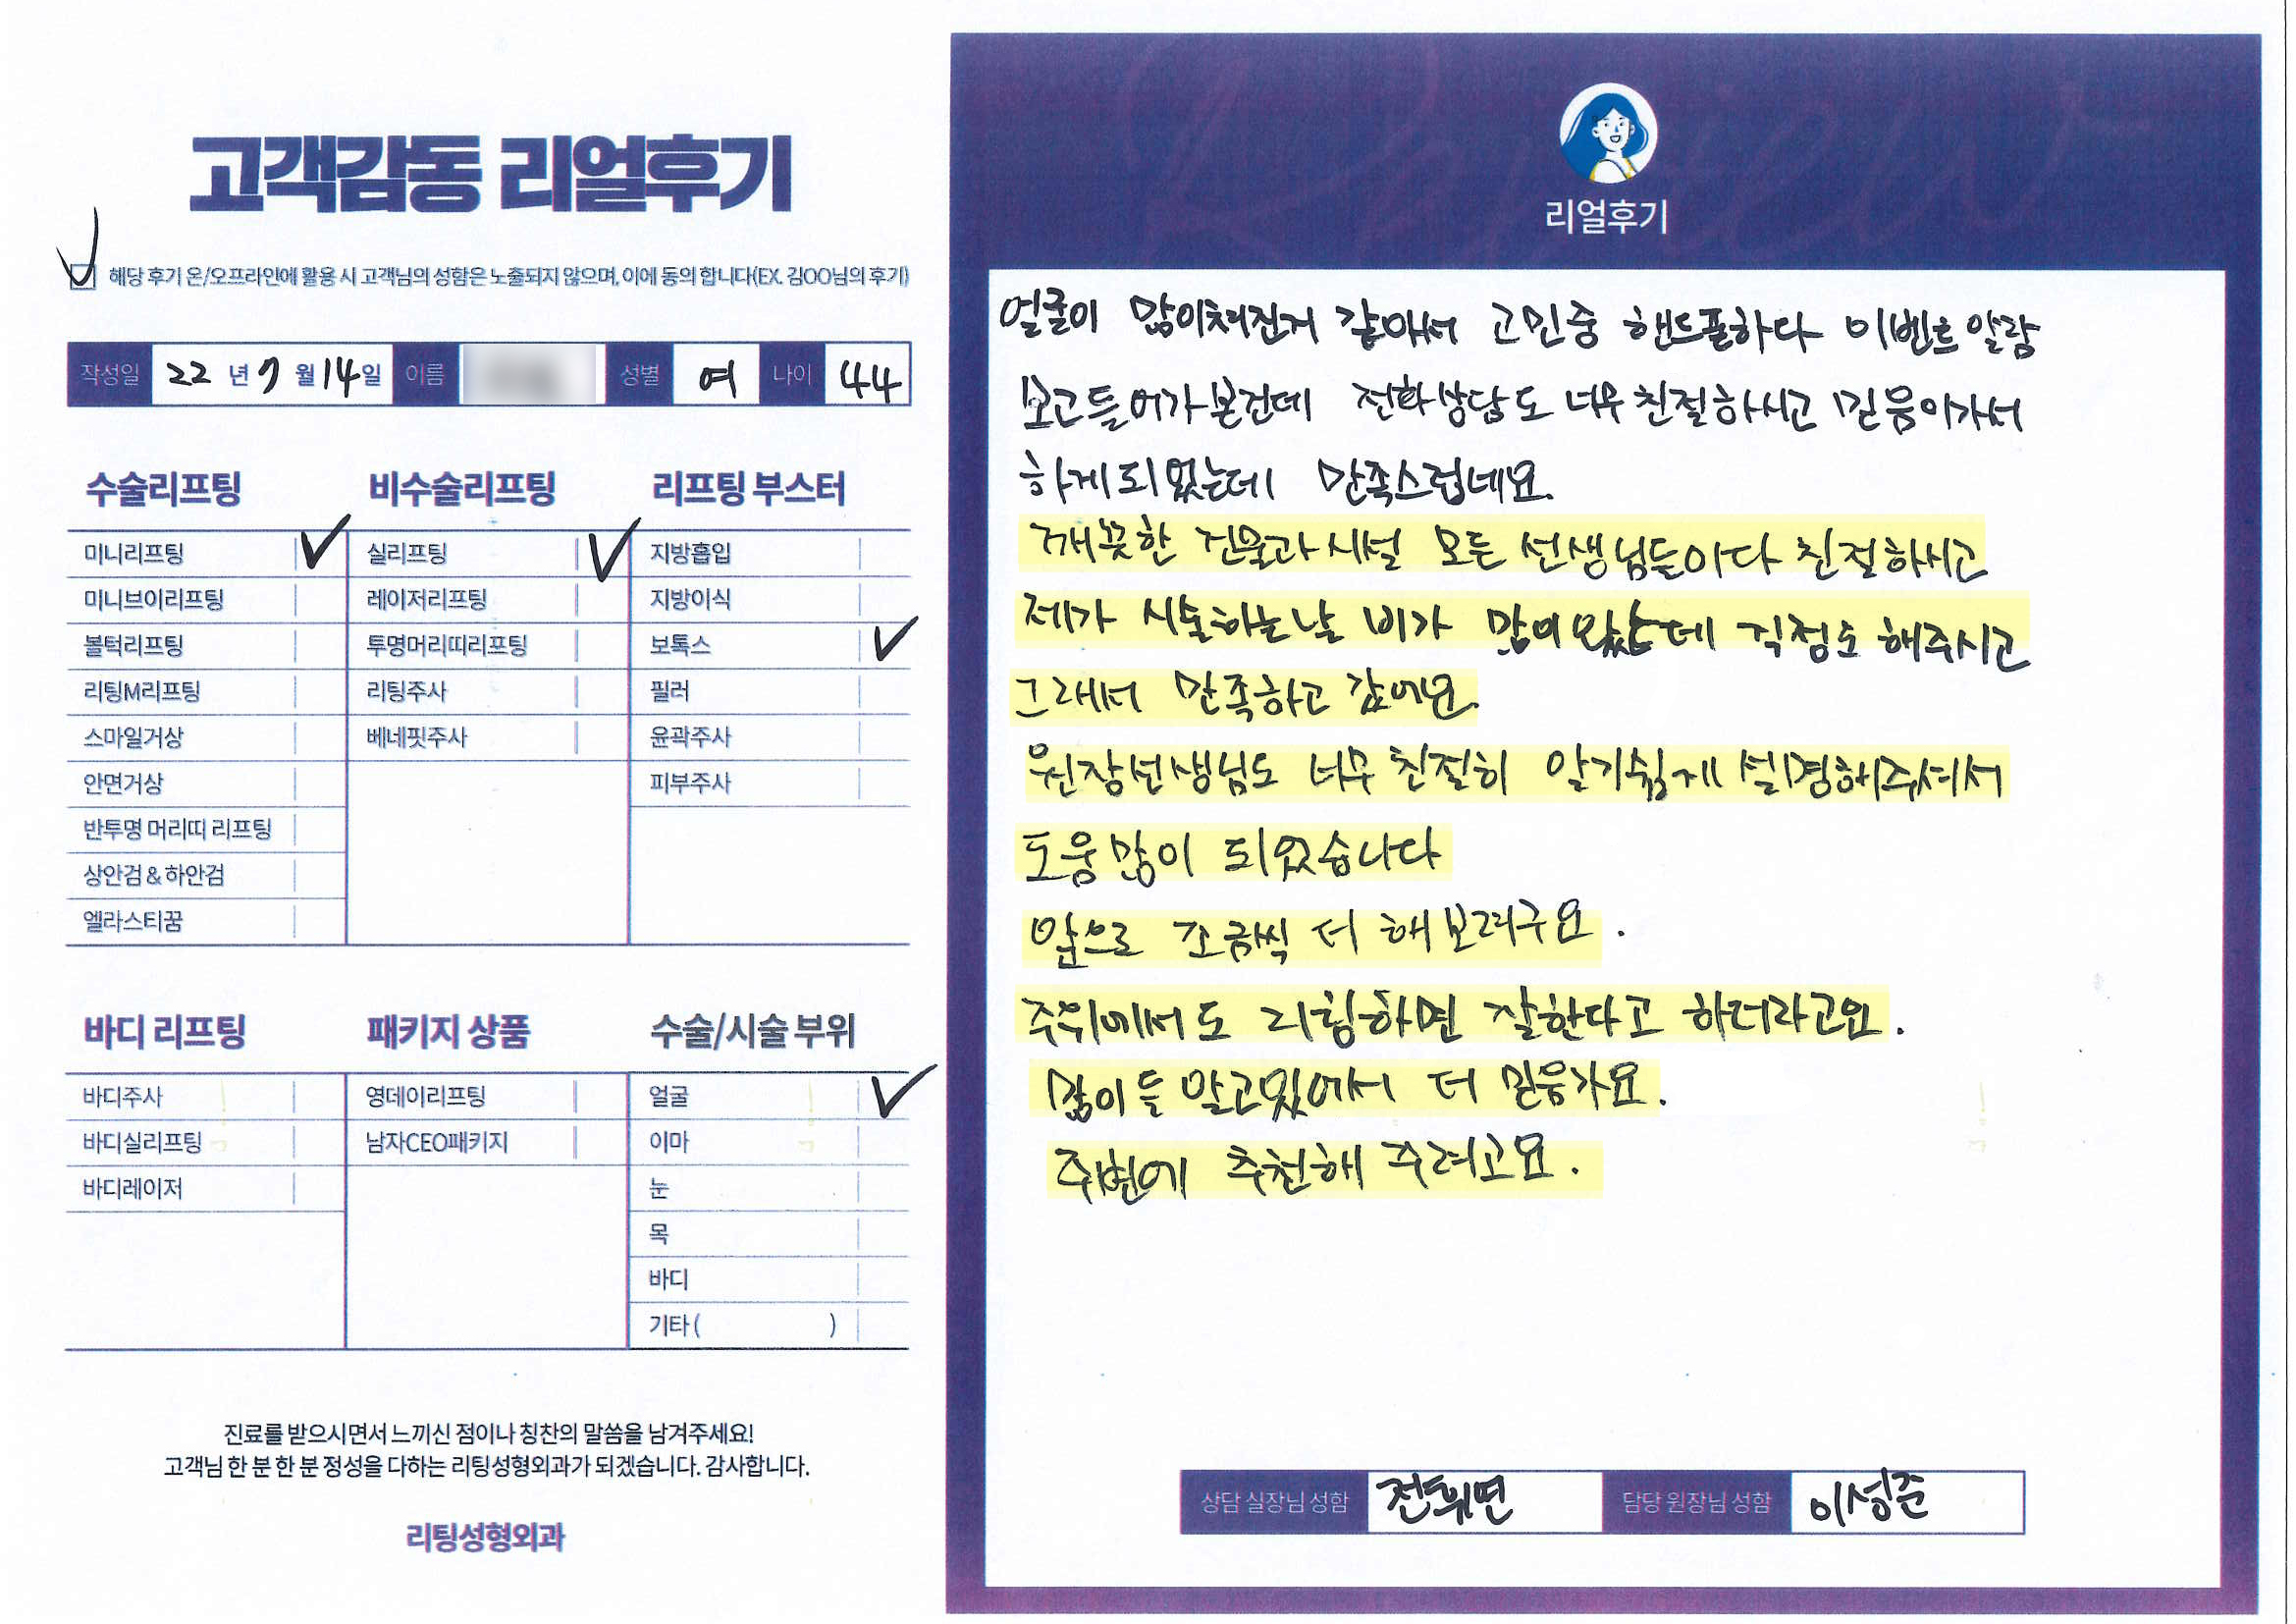 고객감동 리얼후기
해당 후기 온/오프라인에 활용 시 고객님의 성함은 노출되지 않으며, 이에 동의 합니다(EX. 김OO님의 후기)
작성일 22 년 7 월 14 일 이름 성별 여 나이 44
수술리프팅
미니리프팅
미니브이리프팅
볼턱리프팅
리팅M리프팅
스마일거상
안면거상
반투명 머리띠 리프팅
상안검 & 하안검
엘라스티꿈
비수술리프팅
실리프팅
레이저리프팅
투명머리띠리포팅
리팅주사
베네핏주사
리프팅 부스터
지방흡입
지방이식
보톡스
필러
윤곽주사
피부주사
바디 리프팅
바디주사
바디실리프팅
바디레이저
패키지 상품
영데이리프팅
남자CEO패키지
수술/시술 부위
얼굴
이마
눈
목
바디
기타 ( )
진료를 받으시면서 느끼신 점이나 칭찬의 말씀을 남겨주세요!
고객님 한 분 한 분 정성을 다하는 리팅성형외과가 되겠습니다. 감사합니다.
리팅성형외과
리얼후기
얼굴이 많이쳐진거 같아서 고민중 핸드폰하다 이벤트 알람
보고들어가본건데 전화상담도 너무 친절하시고 믿음이가서
하게되었는데 만족스럽네요.
깨끗한 건물과 시설 모든 선생님들이다 친절하시고
제가 시술하는날 비가 많이 왔는데 걱정도 해주시고
그래서 만족하고 갔어요.
원장선생님도 너무 친절히 알기쉽게 설명해주셔서
도움많이 되었습니다
앞으로 조금씩 더 해보려구요.
주위에서도 리팅하면 잘한다고 하더라고요.
많이들 알고있어서 더 믿음가요.
주변에 추천해 주려고요.
상담 실장님 성함 전휘면 담당 원장님 성함 이성준